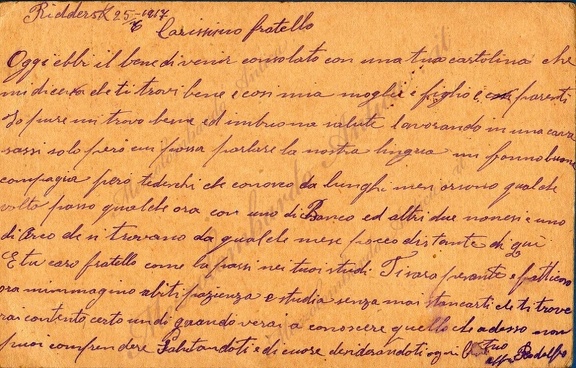 Riddersk 25/6-1917
Carissimo fratello
Oggi ebbi il bene di venir consolato con una tua cartolina che
mi diceva che ti trovi bene e cosi mia moglie e figlio e parenti
Io pure mi trovo bene ed in buona salute lavorando in una cava
sassi solo però un possa parlare la nostra lingua mi fanno buona
compagia però tedeschi che conosco da lunghi mesi or sono qualche
volta passo qualche ora con uno di Banco ed altri due nonesi e uno
di Arco che si trovano da qualche mese poco distante di qui
E tu caro fratello come la passi nei tuoi studi Ti sara pesante e faticoso
ora m'immagino abiti pazienza e studia senza mai stancarti che ti trove
rai contento certo un di quando verai a conoscere quello che adesso non
puoi comprendere Salutandoti di cuore desiderandoti ogni
tuo
aff Rodolfo